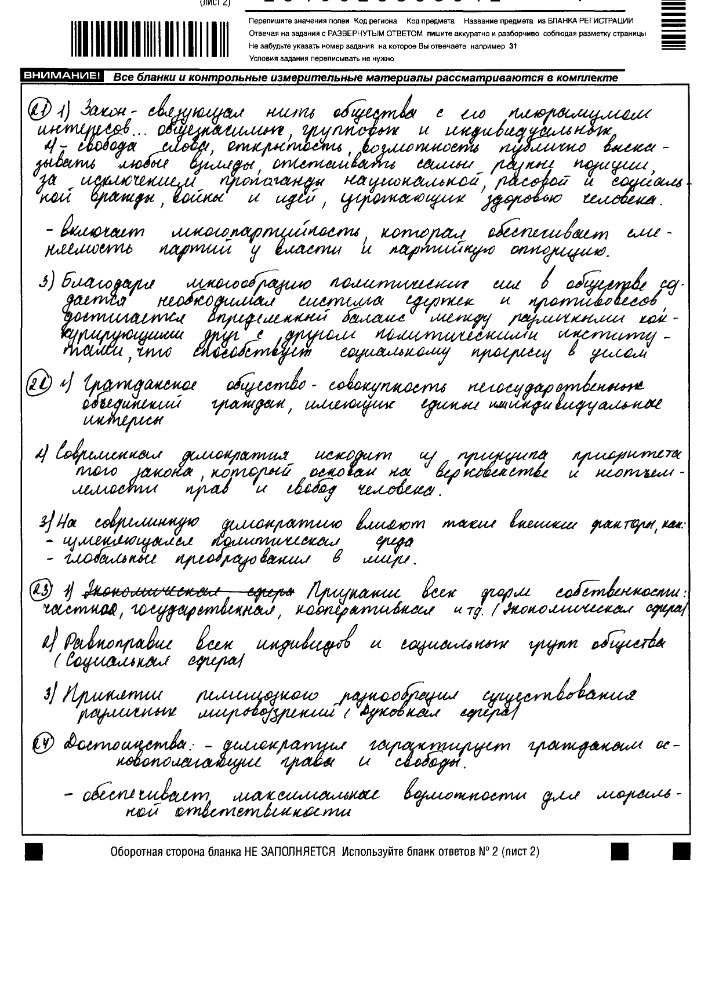 (лист 2)
Перепишите значения полей Код региона Код предмета Название предмета из БЛАНКА РЕГИСТРАЦИИ
Отвечая на задания с РАЗВЕРНУТЫМ ОТВЕТОМ пишите аккуратно и разборчиво соблюдая разметку страницы
Не забудьте указать номер задания на которое Вы отвечаете например 31
Условия задания переписывать не нужно
ВНИМАНИЕ! Все бланки и контрольные измерительные материалы рассматриваются в комплекте
21 1) Закон - связующая нить общества с его плюрализмом
интересов... общезначимых, групповых и индивидуальных
2) - свобода слова, открытость, возможность публично выска-
зывать любые взгляды, отстаивать самые разные позиции,
за исключением пропаганды национальной, расовой и социаль-
ной вражды, войны и идей, угрожающих здоровью человека.
- включает многопартийность, которая обеспечивает сме-
няемость партий у власти и партийную оппозицию.
3) Благодаря многообразию политических сил в обществе соз-
дается необходимая система сдержек и противовесов,
достигается определенный баланс между различными кон-
курирующими друг с другом политическими институ-
тами, что способствует социальному прогрессу в целом
22 1) Гражданское общество - совокупность негосударственных
объединений граждан, имеющих единые или индивидуальные
интересы
2) Современная демократия исходит из принципа приоритета
того закона, который основан на верховенстве и неотъем-
лемости прав и свобод человека.
3) На современную демократию влияют такие внешние факторы, как:
- изменяющаяся политическая среда
- глобальные преобразования в мире.
23 1) Экономическая сфера Признании всех форм собственности:
частная, государственная, кооперативная и тд. (Экономическая сфера)
2) Равноправие всех индивидов и социальных групп общества
(Социальная сфера)
3) Принятии религиозного разнообразия существования
различных мировоззрений (Духовная сфера)
24 Достоинства: - демократия гарантирует гражданам ос-
новополагающие права и свободы.
- обеспечивает максимальные возможности для мораль-
ной ответственности
Оборотная сторона бланка НЕ ЗАПОЛНЯЕТСЯ Используйте бланк ответов № 2 (лист 2)